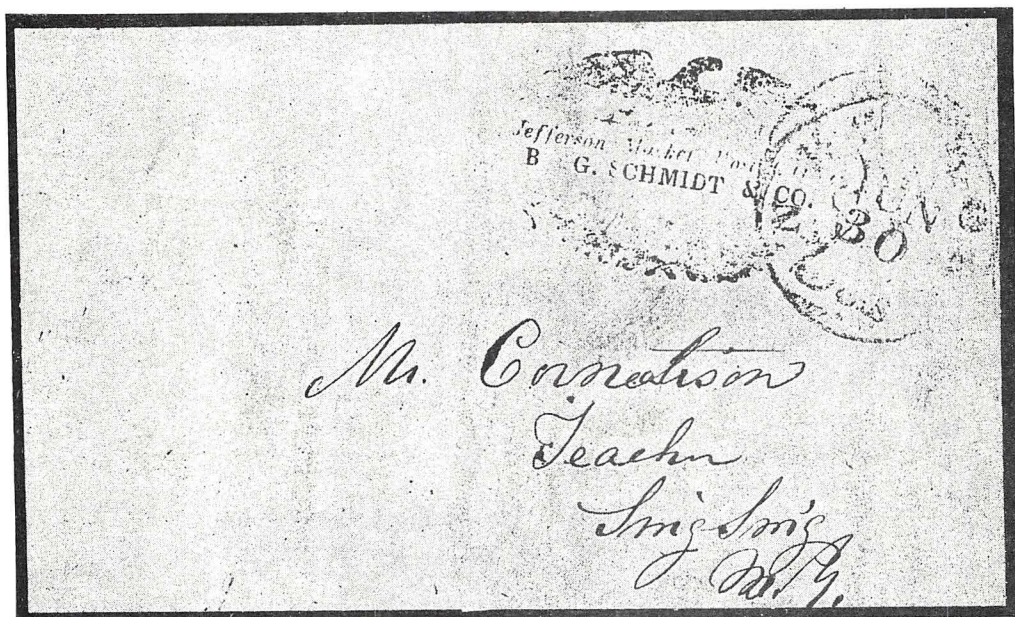 Jefferson Market
B G. SCHMIDT & CO.
JUN
30
Mr. Cornelison
Teacher
Sing Sing
N. Y.